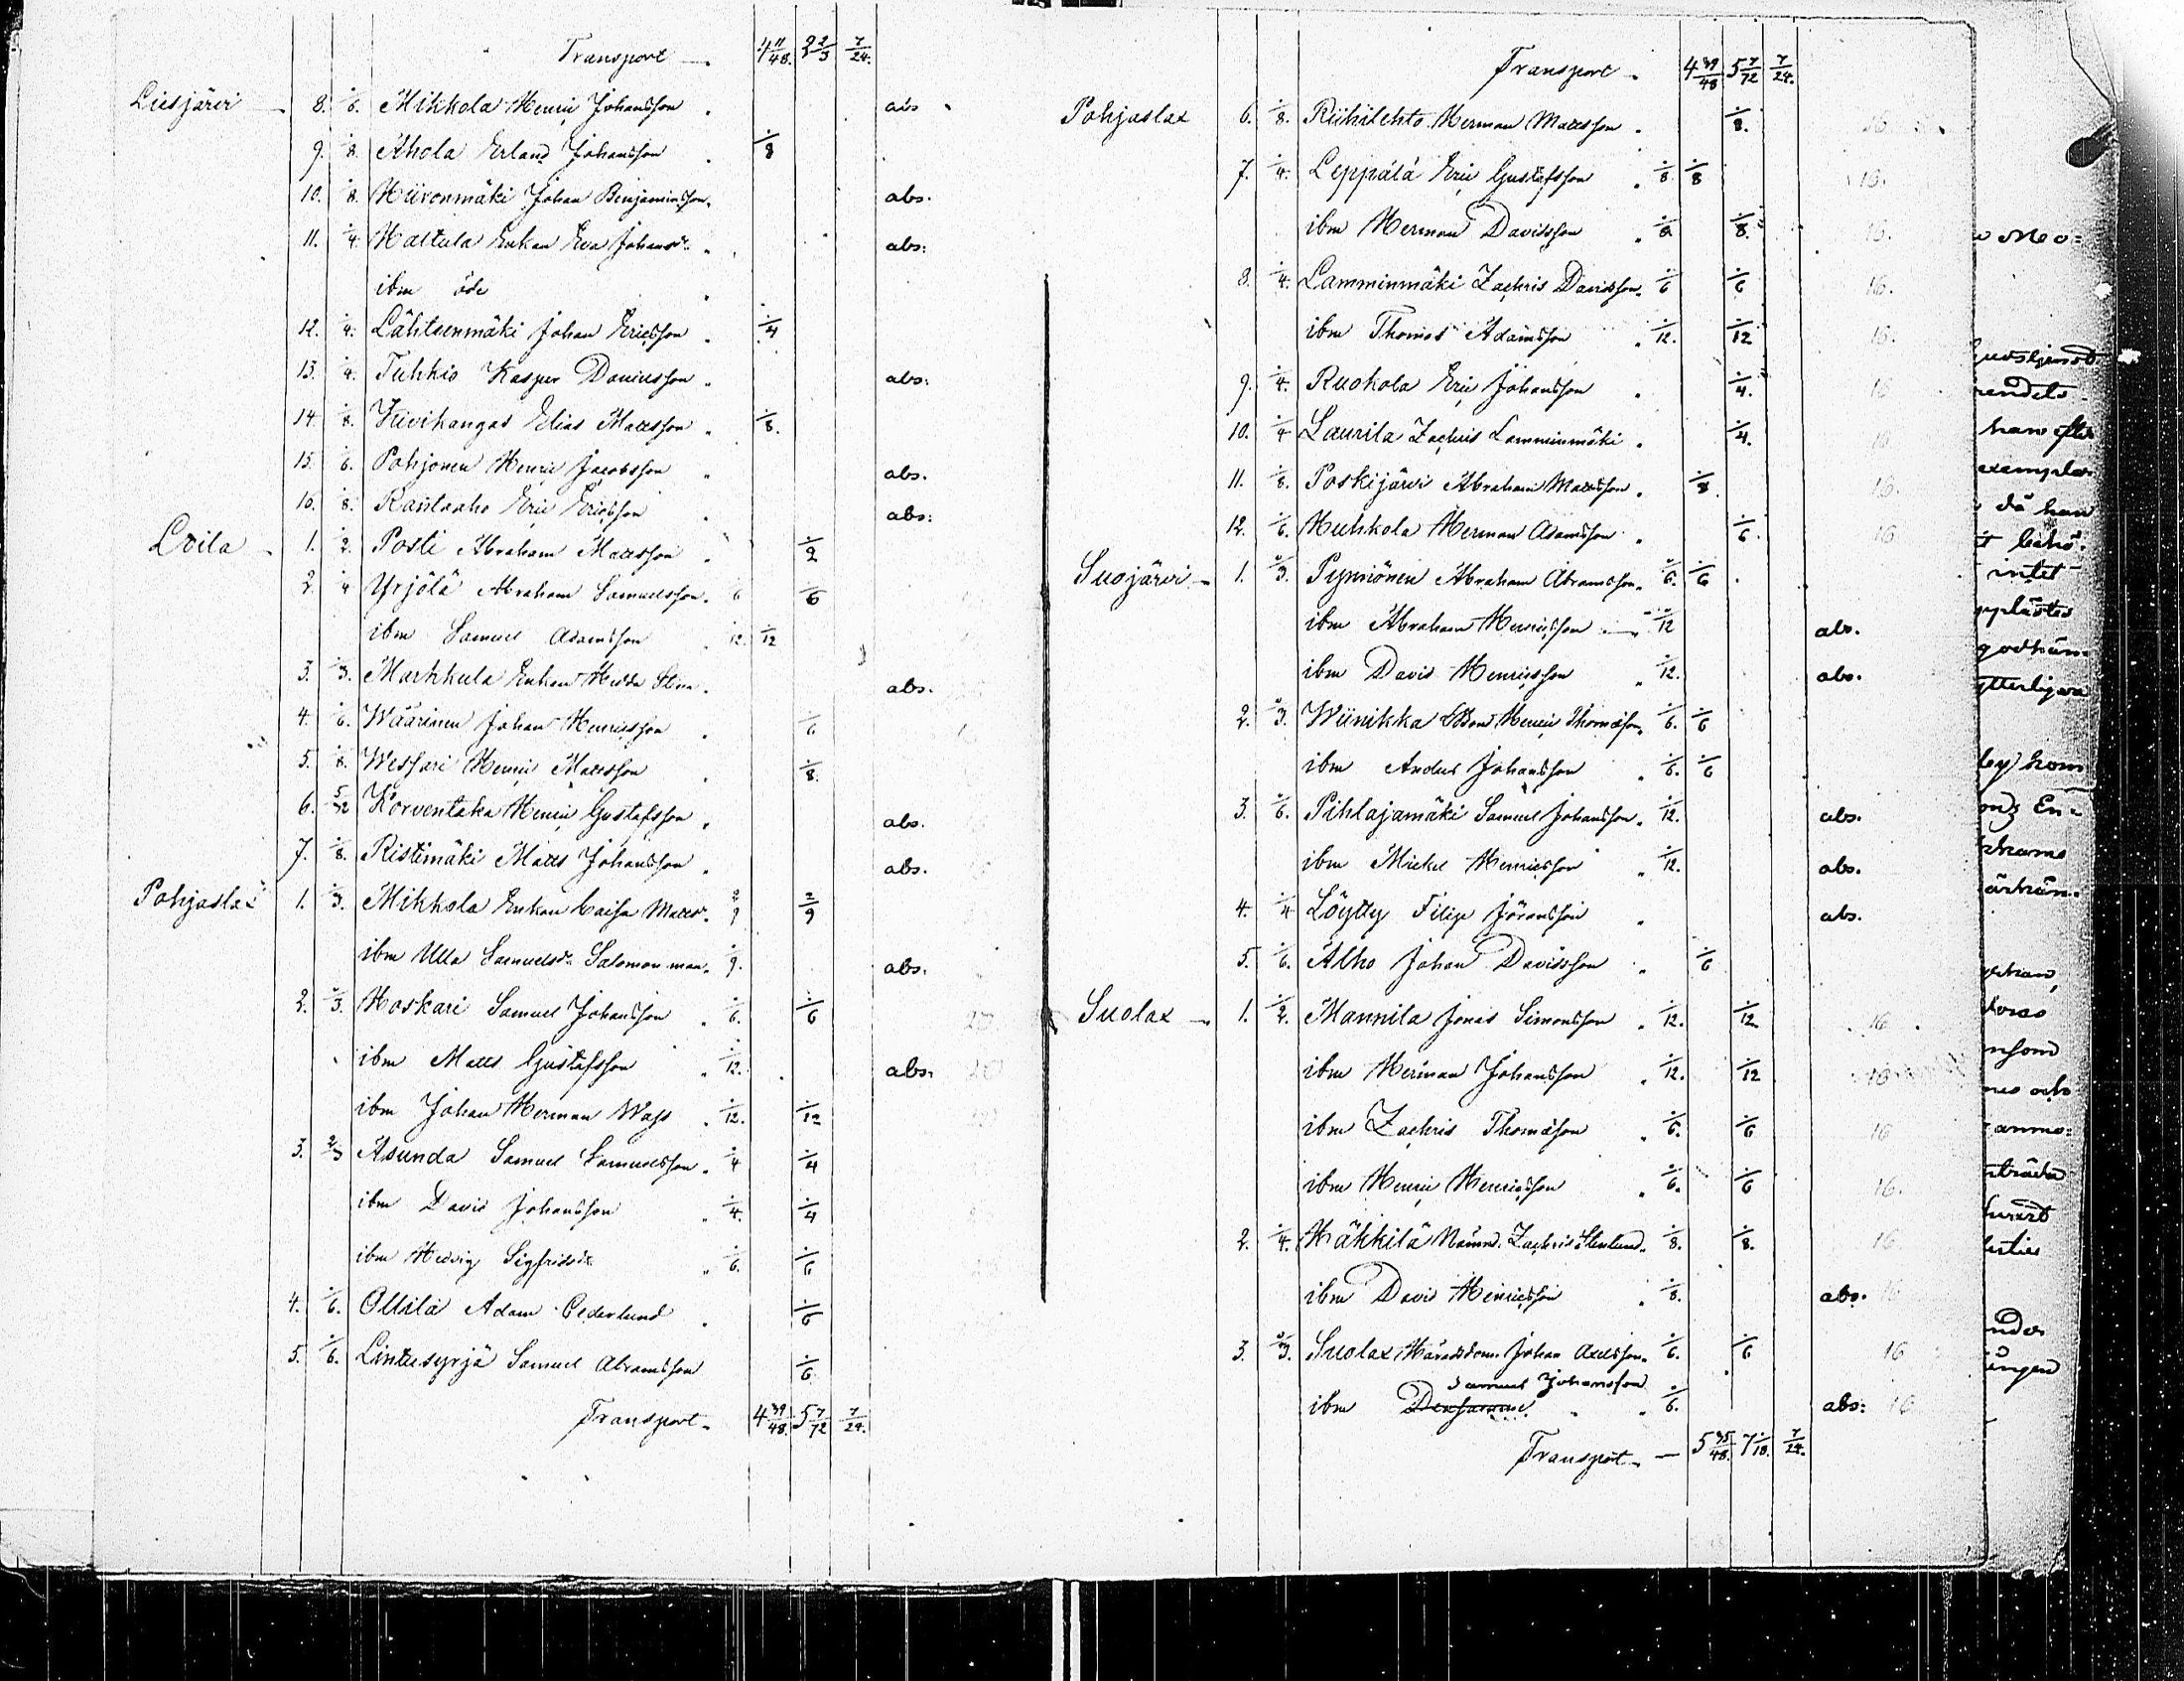 Transport — 4 11/48. 2 2/3 7/24.
Liesjärvi — 8. 1/6. Mikkola Henric Johansson . abs
9. 1/8. Ahola Erland Johansson . 1/8
10. 1/8. Hiironmäki Johan Benjaminsson. abs.
11. 1/4. Hattula Enkan Eva Johansdr. „ abs:
ibm öde „
12. 1/4. Lähteenmäki Johan Ericsson „ 1/4
13. 1/4. Tuhkio Kasper Danielsson „ abs:
14. 1/8. Kivikangas Elias Mattsson „ 1/8.
15. 1/6. Pohjonen Henric Jacobsson „ abs.
10. 1/8. Rautaaho Eric Ericsson . abs:
Loila — 1. 1/2. Posti Abraham Mattsson „ 1/2
2. 1/4 Yrjölä Abraham Samuelsson. 1/6 1/6
ibm Samuel Adamsson . 1/12. 1/12
3. 1/3. Markkula Enkan Hedda Stina . abs.
4. 1/6. Wäärinen Johan Henricsson . 1/6
5. 1/8. Wessari Henric Mattsson . 1/8.
6. 5/12 Korventaka Henric Gustafsson „ abs.
7. 1/8. Ristimäki Matts Johansson „ abs.
Pohjaslax 1. 1/3. Mikkola Enkan Caisa Mattsdr. 2/9 2/9
ibm Ulla Samuelsdr. Salomon man. 1/9. abs.
2. 1/3. Koskari Samuel Johansson „ 1/6. 1/6
ibm Matts Gustafsson „ 1/12. abs.
ibm Johan Herman Wass . 1/12. 1/12
3. 2/3 Asunda Samuel Samuelsson . 1/4 1/4
ibm David Johansson „ 1/4. 1/4
ibm Hedvig Sigfridsdr. „ 1/6. 1/6
4. 1/6. Ollila Adam Cederlund . 1/6
5. 1/6. Lintusyrjä Samuel Abramsson 1/6
Transport. 4 39/48. 5 7/72 7/24.
Transport . 4 39/48 5 7/72 7/24.
Pohjaslax 6. 1/8. Riihilehto Herman Mattsson . 1/8. 16
7. 1/4. Leppälä Eric Gustafsson „ 1/8 1/8 16.
ibm Herman Davidsson „ 1/8 1/8. 16.
8. 1/4. Lamminmäki Zachris Davidsson. 1/6 1/6 16.
ibm Thomas Adamsson „ 1/12. 1/12 16.
9. 1/4. Ruokola Eric Johansson „ 1/4. 16
10. 1/4 Laurila Zachris Lamminmäki . 1/4. 16
11. 1/8. Poskijärvi Abraham Mattsson . 1/8. 16.
12. 1/6. Huhkola Herman Adamsson „ 1/6. 16
Suojärvi — 1. 1/3. Pynnönen Abraham Abramsson. 1/6. 1/6
ibm Abraham Henricsson — 1/12 abs.
ibm David Henricsson „ 1/12. abs.
2. 1/3. Wiinikka Henric Thomasson. 1/6. 1/6
ibm Anders Johansson „ 1/6. 1/6
3. 1/6. Pihlajamäki Samuel Johansson. 1/12. abs.
ibm Mickel Henricsson „ 1/12. abs.
4. 1/4 Löytty Filip Jöransson „ abs.
5. 1/6. Alho Johan Davidsson „ 1/6
Suolax — 1. 1/2. Mannila Jonas Simonsson „ 1/12. 1/12 16
ibm Herman Johansson „ 1/12. 1/12 16
ibm Zachris Thomasson „ 1/6. 1/6 16
ibm Henric Henricsson „ 1/6. 1/6 16.
2. 1/4. Häkkilä Nämnd. Zachris Stenlund. 1/8. 1/8. 16.
ibm David Henricsson „ 1/8. abs. 16
3. 1/3. Suolax Häradsdom. Johan Axelsson. 1/6. 1/6 16
Samuel Johansson
ibm Densamme „ 1/6. abs: 16
Transport. — 5 35/48. 7 1/18. 7/24.